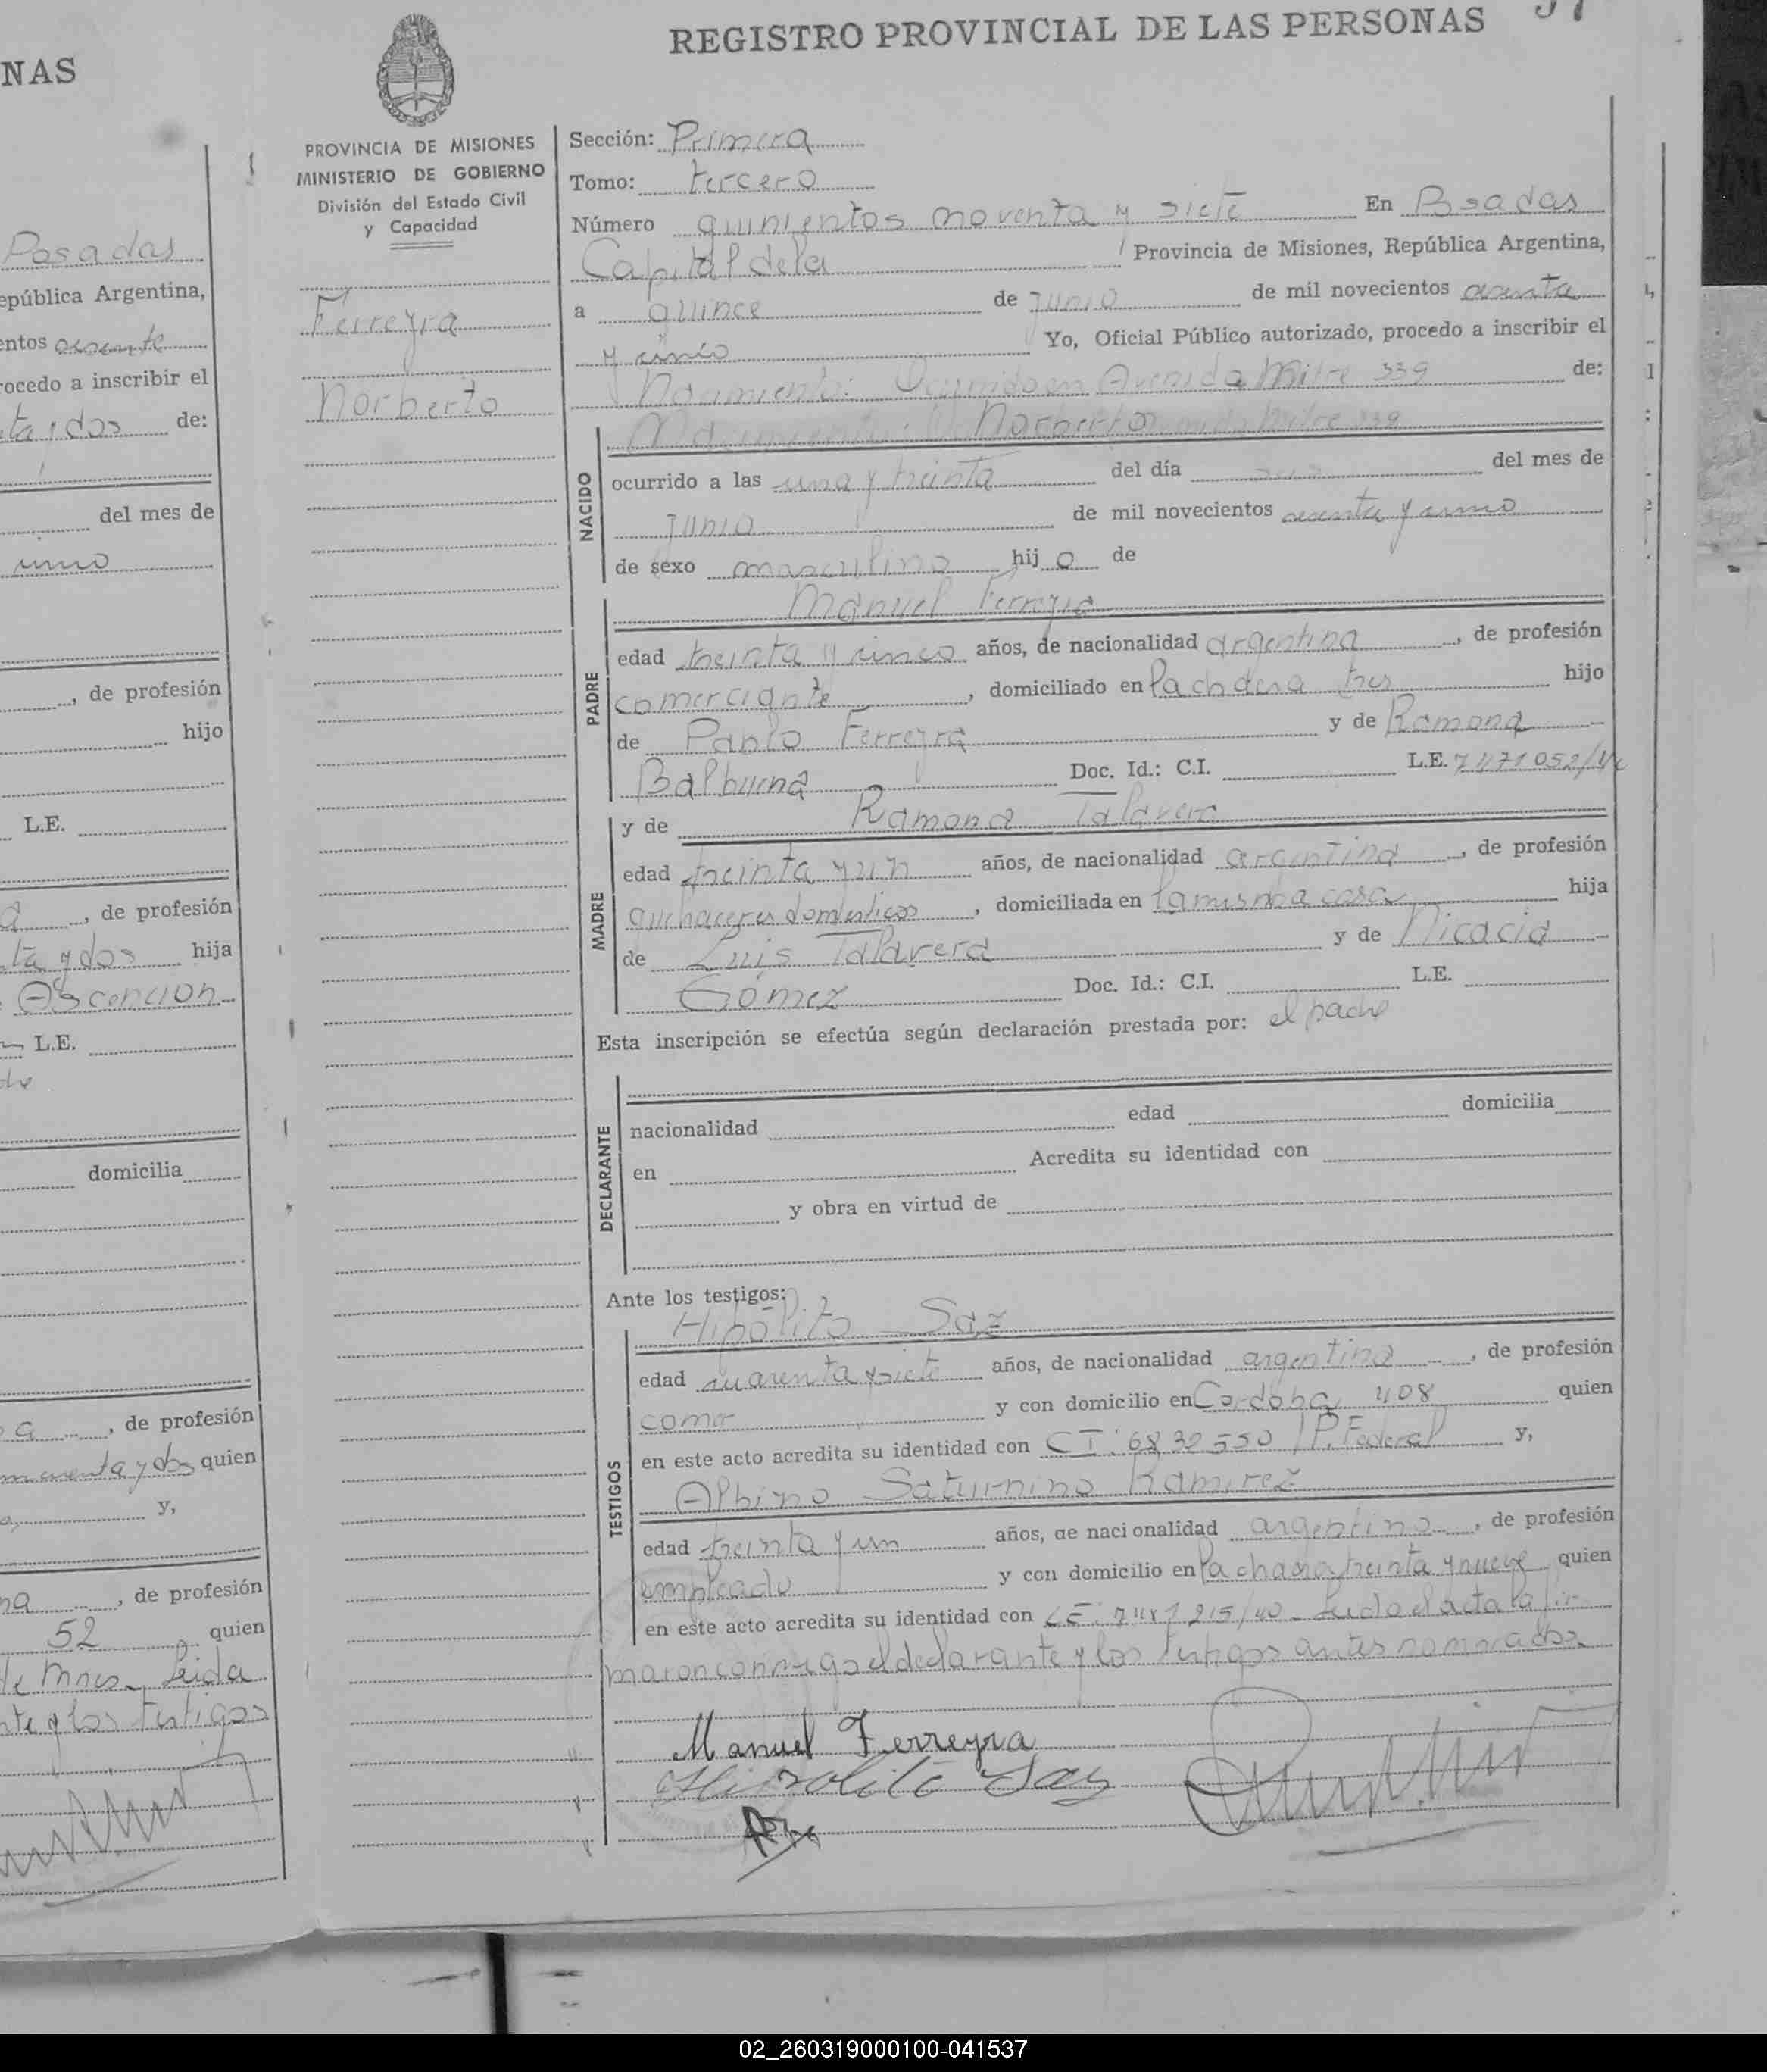 NAS
Posadas
epública Argentina,
entos
rocedo a inscribir el
ta y dos de:
del mes de
uno
, de profesión
hijo
L.E.
a , de profesión
ta y dos hija
Ascencion
L.E.
domicilia
a , de profesión
y dos quien
y,
na , de profesión
52 quien
de Mnes. Leida
nte y los testigos
REGISTRO PROVINCIAL DE LAS PERSONAS
PROVINCIA DE MISIONES
MINISTERIO DE GOBIERNO
División del Estado Civil
y Capacidad
Ferreyra
Norberto
Sección: Primera
Tomo: tercero
Número quinientos noventa y siete En Posadas
Capital de la Provincia de Misiones, República Argentina,
a quince de junio de mil novecientos sesenta
y cinco Yo, Oficial Público autorizado, procedo a inscribir el
Nacimiento: Ocurrido en Avenida Mitre 339 de:
Norberto
NACIDO
ocurrido a las una y treinta del día del mes de
junio de mil novecientos sesenta y cinco
de sexo masculino hijo de
Manuel Ferreyra
PADRE
edad treinta y cinco años, de nacionalidad argentina , de profesión
comerciante , domiciliado en la chacra tres hijo
de Pablo Ferreyra y de Ramona
Balbuena Doc. Id.: C.I. L.E. 7471052/
y de Ramona Talavera
MADRE
edad treinta y un años, de nacionalidad argentina , de profesión
quehaceres domesticos , domiciliada en la misma casa hija
de Luis Talavera y de Nicacia
Gómez Doc. Id.: C.I. L.E.
Esta inscripción se efectúa según declaración prestada por: el padre
DECLARANTE
nacionalidad edad domicilia
en Acredita su identidad con
y obra en virtud de
Ante los testigos:
Hipólito Saz
TESTIGOS
edad cuarenta y siete años, de nacionalidad argentina , de profesión
comer y con domicilio en Cordoba 408 quien
en este acto acredita su identidad con CI: 6832550 / P. Federal y,
Albino Saturnino Ramirez
edad treinta y un años, de nacionalidad argentino , de profesión
empleado y con domicilio en la chacra treinta y nueve quien
en este acto acredita su identidad con LE: 7481215/40 - Leida el acta la fir-
maron conmigo el declarante y los testigos antes nombrados
Manuel Ferreyra
Hipolito Saz
02_260319000100-041537